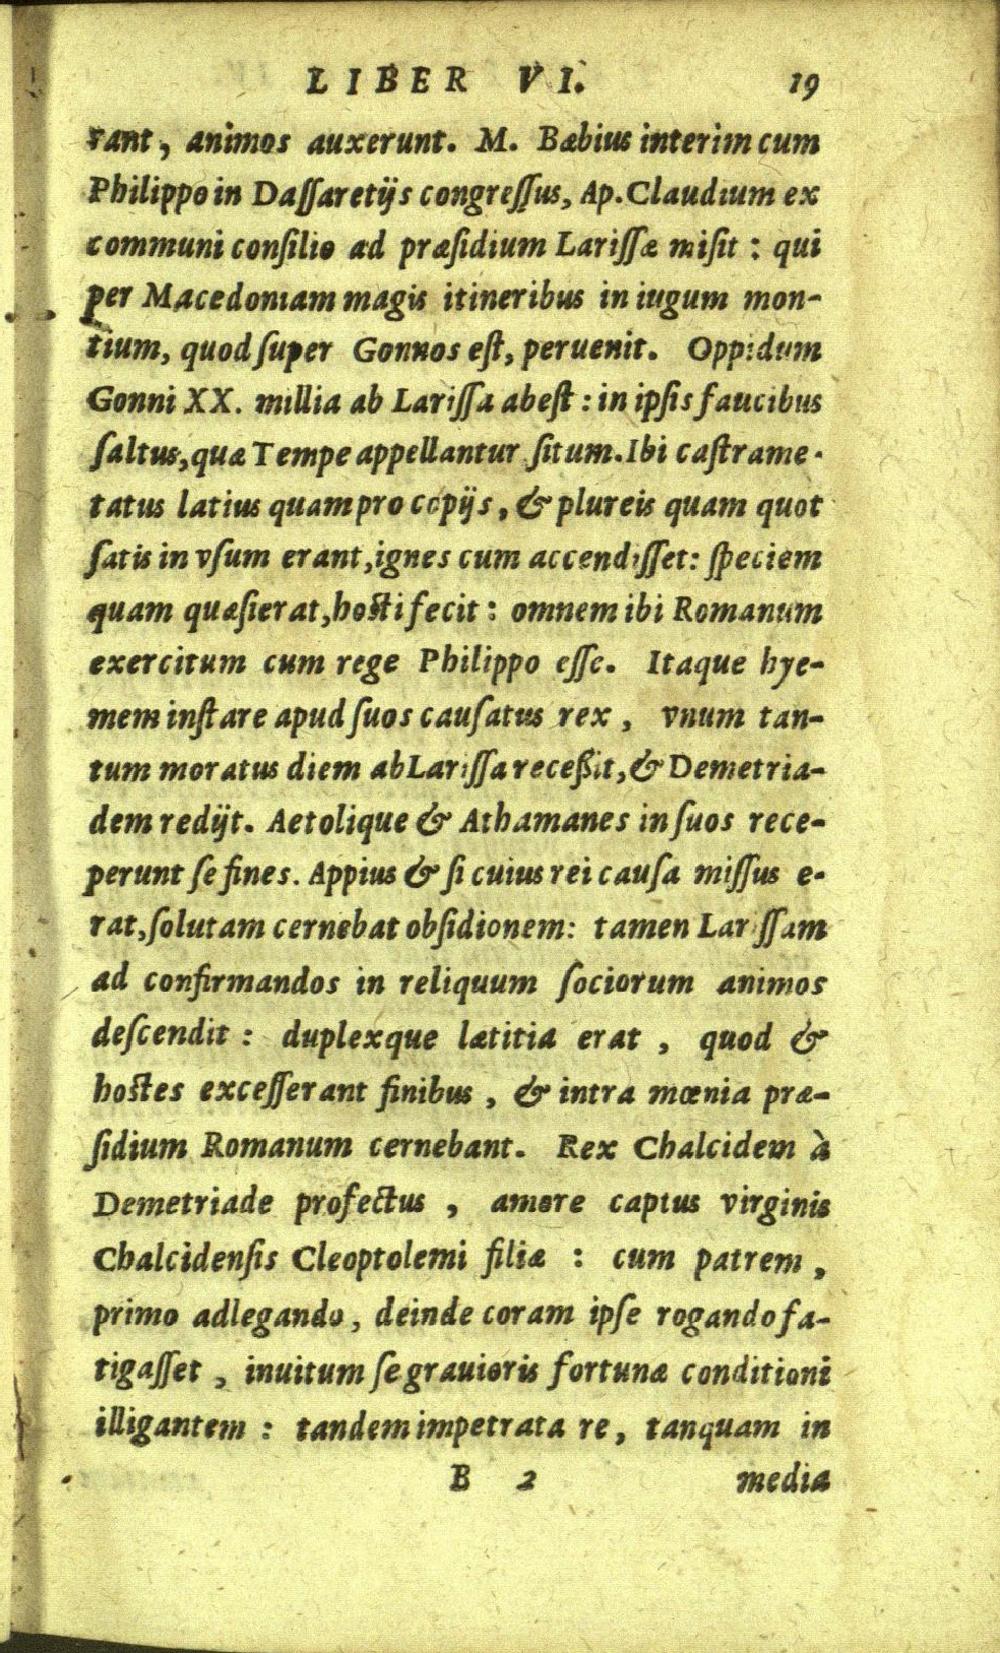 LIBER VI. 19
rant, animos auxerunt. M. Bæbius interim cum
Philippo in Daſſaretijs congreſſus, Ap. Claudium ex
communi conſilio ad præſidium Lariſſæ miſit : qui
per Macedoniam magis itineribus in iugum mon-
tium, quod ſuper Gonnos eſt, peruenit. Oppidum
Gonni XX. millia ab Lariſſa abeſt : in ipſis faucibus
ſaltus, quæ Tempe appellantur ſitum. Ibi caſtrame-
tatus latius quam pro copijs, & plureis quam quot
ſatis in vſum erant, ignes cum accendiſſet: ſpeciem
quam quæſierat, hoſti fecit : omnem ibi Romanum
exercitum cum rege Philippo eſſe. Itaque hye-
mem inſtare apud ſuos cauſatus rex, vnum tan-
tum moratus diem ab Lariſſa receßit, & Demetria-
dem redijt. Aetolique & Athamanes in ſuos rece-
perunt ſe fines. Appius & ſi cuius rei cauſa miſſus e-
rat, ſolutam cernebat obſidionem: tamen Lariſſam
ad confirmandos in reliquum ſociorum animos
deſcendit : duplexque lætitia erat, quod &
hoſtes exceſſerant finibus, & intra mœnia præ-
ſidium Romanum cernebant. Rex Chalcidem à
Demetriade profectus, amore captus virginis
Chalcidenſis Cleoptolemi filiæ : cum patrem,
primo adlegando, deinde coram ipſe rogando fa-
tigaſſet, inuitum ſe grauioris fortunæ conditioni
illigantem : tandem impetrata re, tanquam in
B 2 media